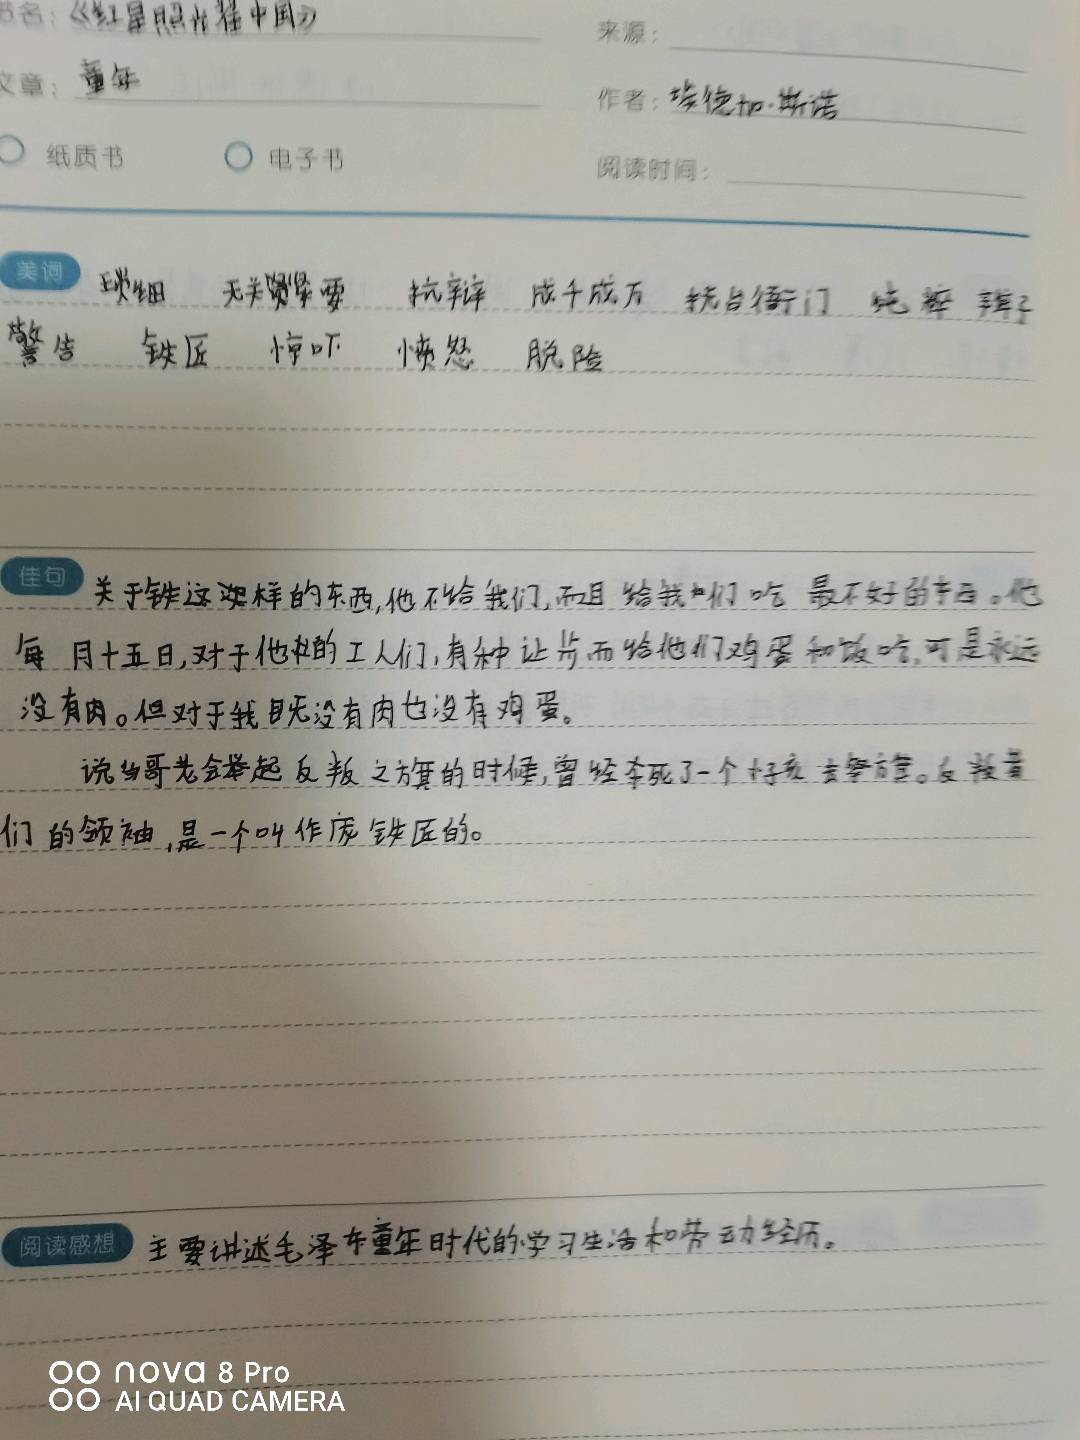 书名：《红星照耀中国》
来源：
文章：童年
作者：埃德加·斯诺
纸质书 电子书
阅读时间：
美词 琐细 无关紧要 抗辩 成千成万 抚台衙门 纯粹 辫子
警告 铁匠 惊吓 愤怒 脱险
佳句 关于钱这样的东西,他不给我们,而且给我们吃最不好的东西。他
每月十五日,对于他的工人们,有种让步而给他们鸡蛋和饭吃,可是永远
没有肉。但对于我既没有肉也没有鸡蛋。
说当哥老会举起反叛之旗的时候,曾经杀死了一个小孩去祭旗。反叛者
们的领袖,是一个叫作庞铁匠的。
阅读感想 主要讲述毛泽东童年时代的学习生活和劳动经历。
nova 8 Pro
AI QUAD CAMERA